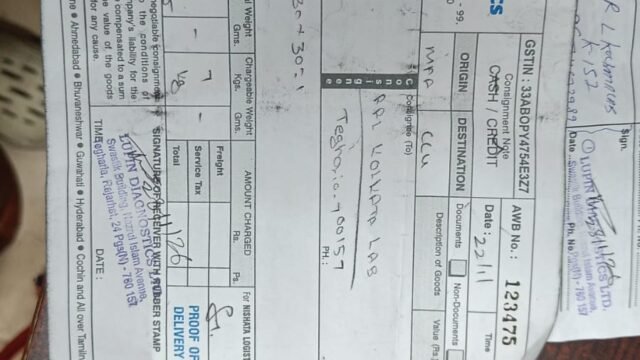 CS
- 99.
GSTIN : 33ABOPY4754E3Z7
AWB No. : 123475
Consignment Note
CASH / CREDIT
Date : 22/11
Time
ORIGIN
DESTINATION
Documents
Non-Documents
MAA
CCU
Description of Goods
Value (Rs
Consignee (To)
KOLKATA LAB
Teghoria-700157
PH. :
Weight
Gms.
Chargeable Weight
Kgs.
Gms.
AMOUNT CHARGED
Rs.
Ps.
Freight
Service Tax
Total
For NISHATA LOGIST
PROOF OF
DELIVERY
negotiable consignm
to the conditions of
pany's liability for the
compensated to a sum
the value of the goods
for any cause.
SIGNATURE OF RECEIVER WITH RUBBER STAMP
LUPIN DIAGNOSTICS
Swastik Building, Nazrul Islam Avenue,
Tegharia, Rajarhat, 24 Pgs(N) - 700 157
TIME :
DATE :
● Ahmedabad ● Bhuvaneshwar ● Guwahati ● Hyderabad ● Cochin and All over Tamiln
Sign.
K-152
Date
Ph. No.
LTD.
Islam Avenue,